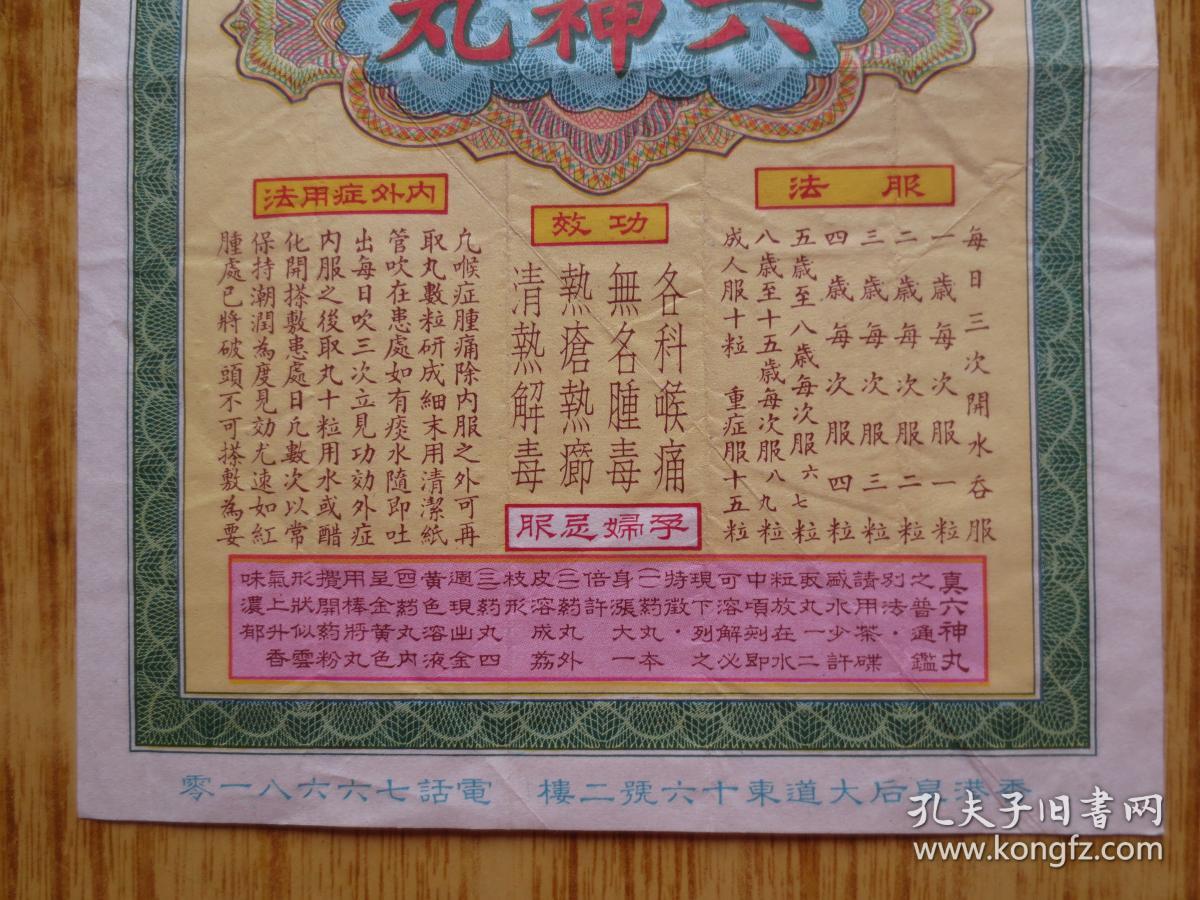 六神丸
服法
每日三次開水吞服
一歲每次服一粒
二歲每次服二粒
三歲每次服三粒
四歲每次服四粒
五歲至八歲每次服六七粒
八歲至十五歲每次服八九粒
成人服十粒 重症服十五粒
功效
各科喉痛
無名腫毒
熱瘡熱癤
清熱解毒
孕婦忌服
內外症用法
凡喉症腫痛除內服之外可再
取丸數粒研成細末用清潔紙
管吹在患處如有痰水隨即吐
出每日吹三次立見功効外症
內服之後取丸十粒用水或醋
化開搽敷患處日凡數次以常
保持潮潤為度見効尤速如紅
腫處已將破頭不可搽敷為要
真六神丸
之普通鑑
別法·
請用茶碟
盛水少許
取丸一二
粒放在水
中頃刻即
可溶解必
現下列之
特徵·
(一)药丸本
身漲大一
倍許
(二)药丸外
皮溶成荔
枝形
(三)药丸四
週現出金
黃色溶液
(四)药丸內
呈金黃色
用棒將丸
攪開药粉
形狀似雲
氣上升香
味濃郁
香港皇后大道東十六號二樓 電話七六六八一零
孔夫子旧书网
www.kongfz.com